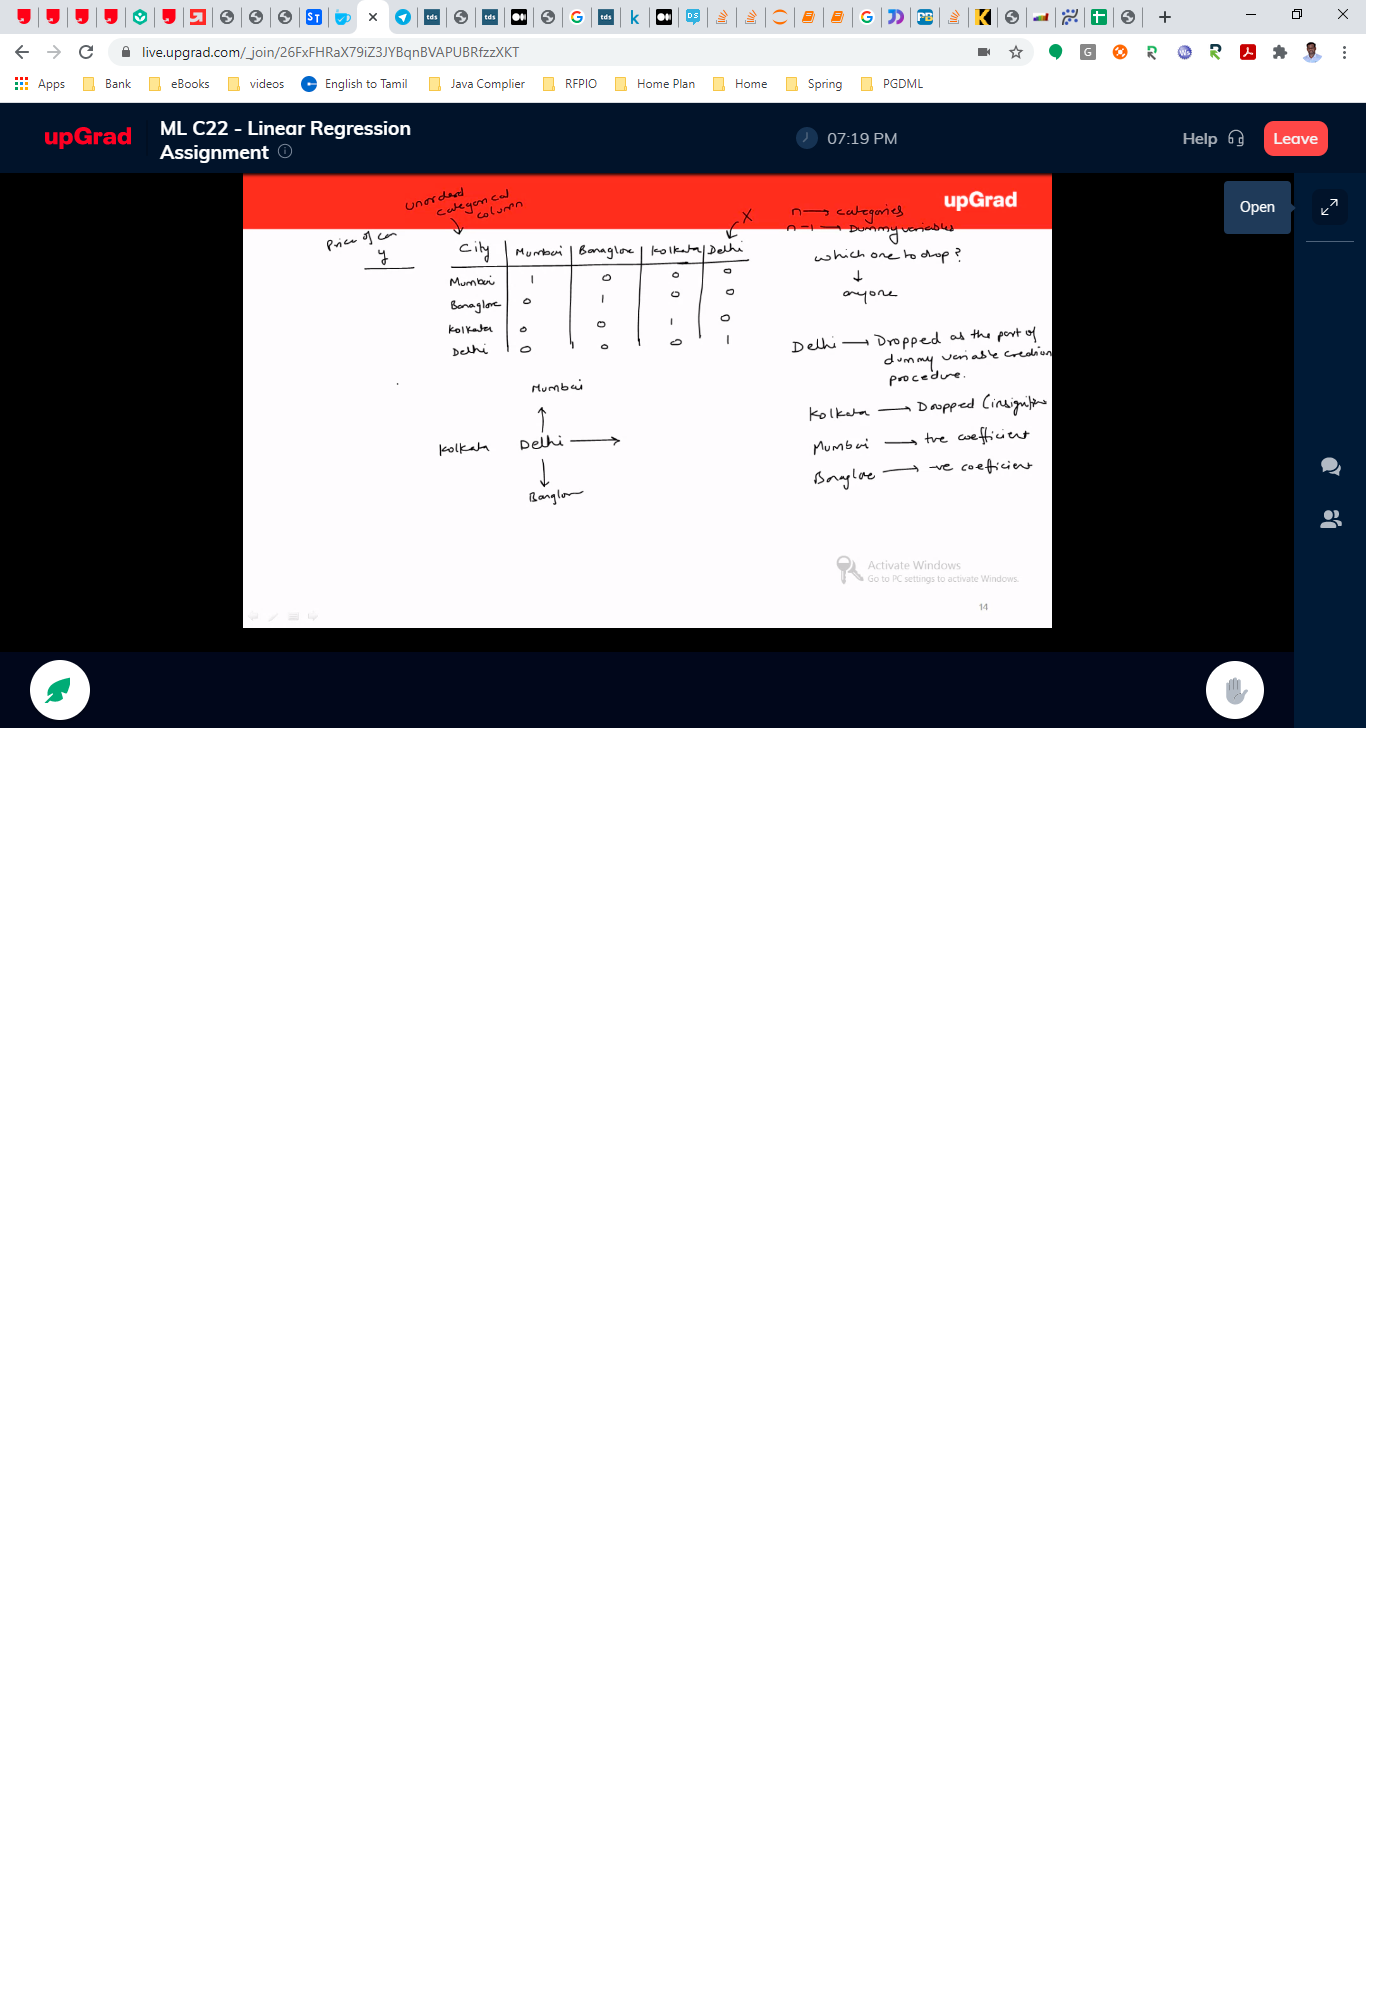 live.upgrad.com/_join/26FxFHRaX79iZ3JYBqnBVAPUBRfzzXKT
Apps Bank eBooks videos English to Tamil Java Complier RFPIO Home Plan Home Spring PGDML
upGrad
ML C22 - Linear Regression
Assignment
07:19 PM
Help
Leave
Open
upGrad
unordered
categorical
column
n → categories
n-1 → Dummy variables
Price of car
y
City Mumbai Banaglore Kolkata Delhi
X
Mumbai 1 0 0 0
Banaglore 0 1 0 0
Kolkata 0 0 1 0
Delhi 0 0 0 1
which one to drop?
↓
anyone
Delhi → Dropped as the part of
dummy variable creation
procedure.
Kolkata → Dropped
Mumbai → +ve coefficient
Banaglore → -ve coefficient
Mumbai
Kolkata Delhi →
Banglore
Activate Windows
Go to PC settings to activate Windows.
14